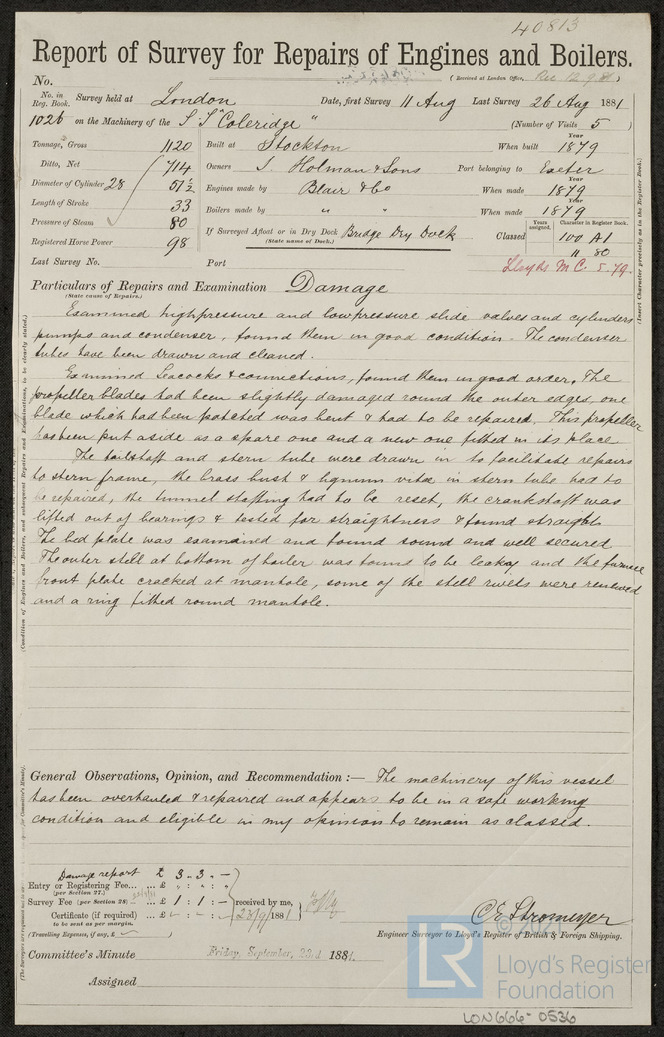 40813
Report of Survey for Repairs of Engines and Boilers.
No.
(Received at London Office,
No. in Reg. Book. Survey held at London Date, first Survey 11 Aug Last Survey 26 Aug 1881
1026 on the Machinery of the S.S "Coleridge" (Number of Visits 5 )
Tonnage, Gross 1120 Built at Stockton When built Year 1879
Ditto, Net 714 Owners J. Holman & Sons Port belonging to Exeter
Diameter of Cylinder 28 51½ Engines made by Blair & Co When made Year 1879
Length of Stroke 33 Boilers made by " " When made Year 1879
Pressure of Steam 80 If Surveyed Afloat or in Dry Dock Bridge Dry Dock
(State name of Dock.)
Registered Horse Power 98
Years assigned. Character in Register Book.
Classed 100 A1
11 80
Last Survey No. Port Lloyds M.C. 5.79.
Particulars of Repairs and Examination Damage
(State cause of Repairs.)
Examined highpressure and lowpressure slide valves and cylinders
pumps and condenser, found them in good condition. The condenser
tubes have been drawn and cleaned.
Examined Seacocks & connections, found them in good order. The
propeller blades had been slightly damaged round the outer edges, one
blade which had been patched was bent & had to be repaired. This propeller
has been put aside as a spare one and a new one fitted in its place
The tailshaft and stern tube were drawn in to facilitate repairs
to stern frame, the brass bush & lignum vitæ in stern tube had to
be repaired, the tunnel shafting had to be reset, the crankshaft was
lifted out of bearings & tested for straightness & found straight.
The bed plate was examined and found sound and well secured
The outer shell at bottom of boiler was found to be leaky and the furnace
front plate cracked at manhole, some of the shell rivets were renewed
and a ring fitted round manhole.
General Observations, Opinion, and Recommendation :— The machinery of this vessel
has been overhauled & repaired and appears to be in a safe working
condition and eligible in my opinion to remain as classed.
Damage report £ 3 . 3 . –
Entry or Registering Fee... ... £ " : " : "
(per Section 27.)
Survey Fee (per Section 28) ... £ 1 : 1 : – received by me,
Certificate (if required) ... £ 23/9/1881
to be sent as per margin.
(Travelling Expenses, if any, £ )
C E Stromeyer
Engineer Surveyor to Lloyd's Register of British & Foreign Shipping.
Committee's Minute Friday, September, 23rd 1881.
Assigned
(Insert Character precisely as in the Register Book.)
(Condition of Engines and Boilers, and subsequent Repairs and Examinations, to be clearly stated.)
LR
Lloyd's Register
Foundation
LON666-0536